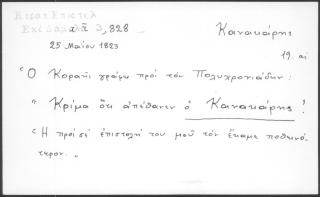 Κοραή Επιστολ
Εκδ Δαμαλᾶ 3, 828
25 Μαΐου 1823
Κανακάρης
19. αἰ
"Ὁ Κοραῆς γράφει πρὸς τὸν Πολυχρονιάδην:
"Κρῖμα ὅτι ἀπέθανεν ὁ Κανακάρης!
"Ἡ πρὸς σὲ ἐπιστολή του μοῦ τὸν ἔκαμε ποθεινό-
τερον."